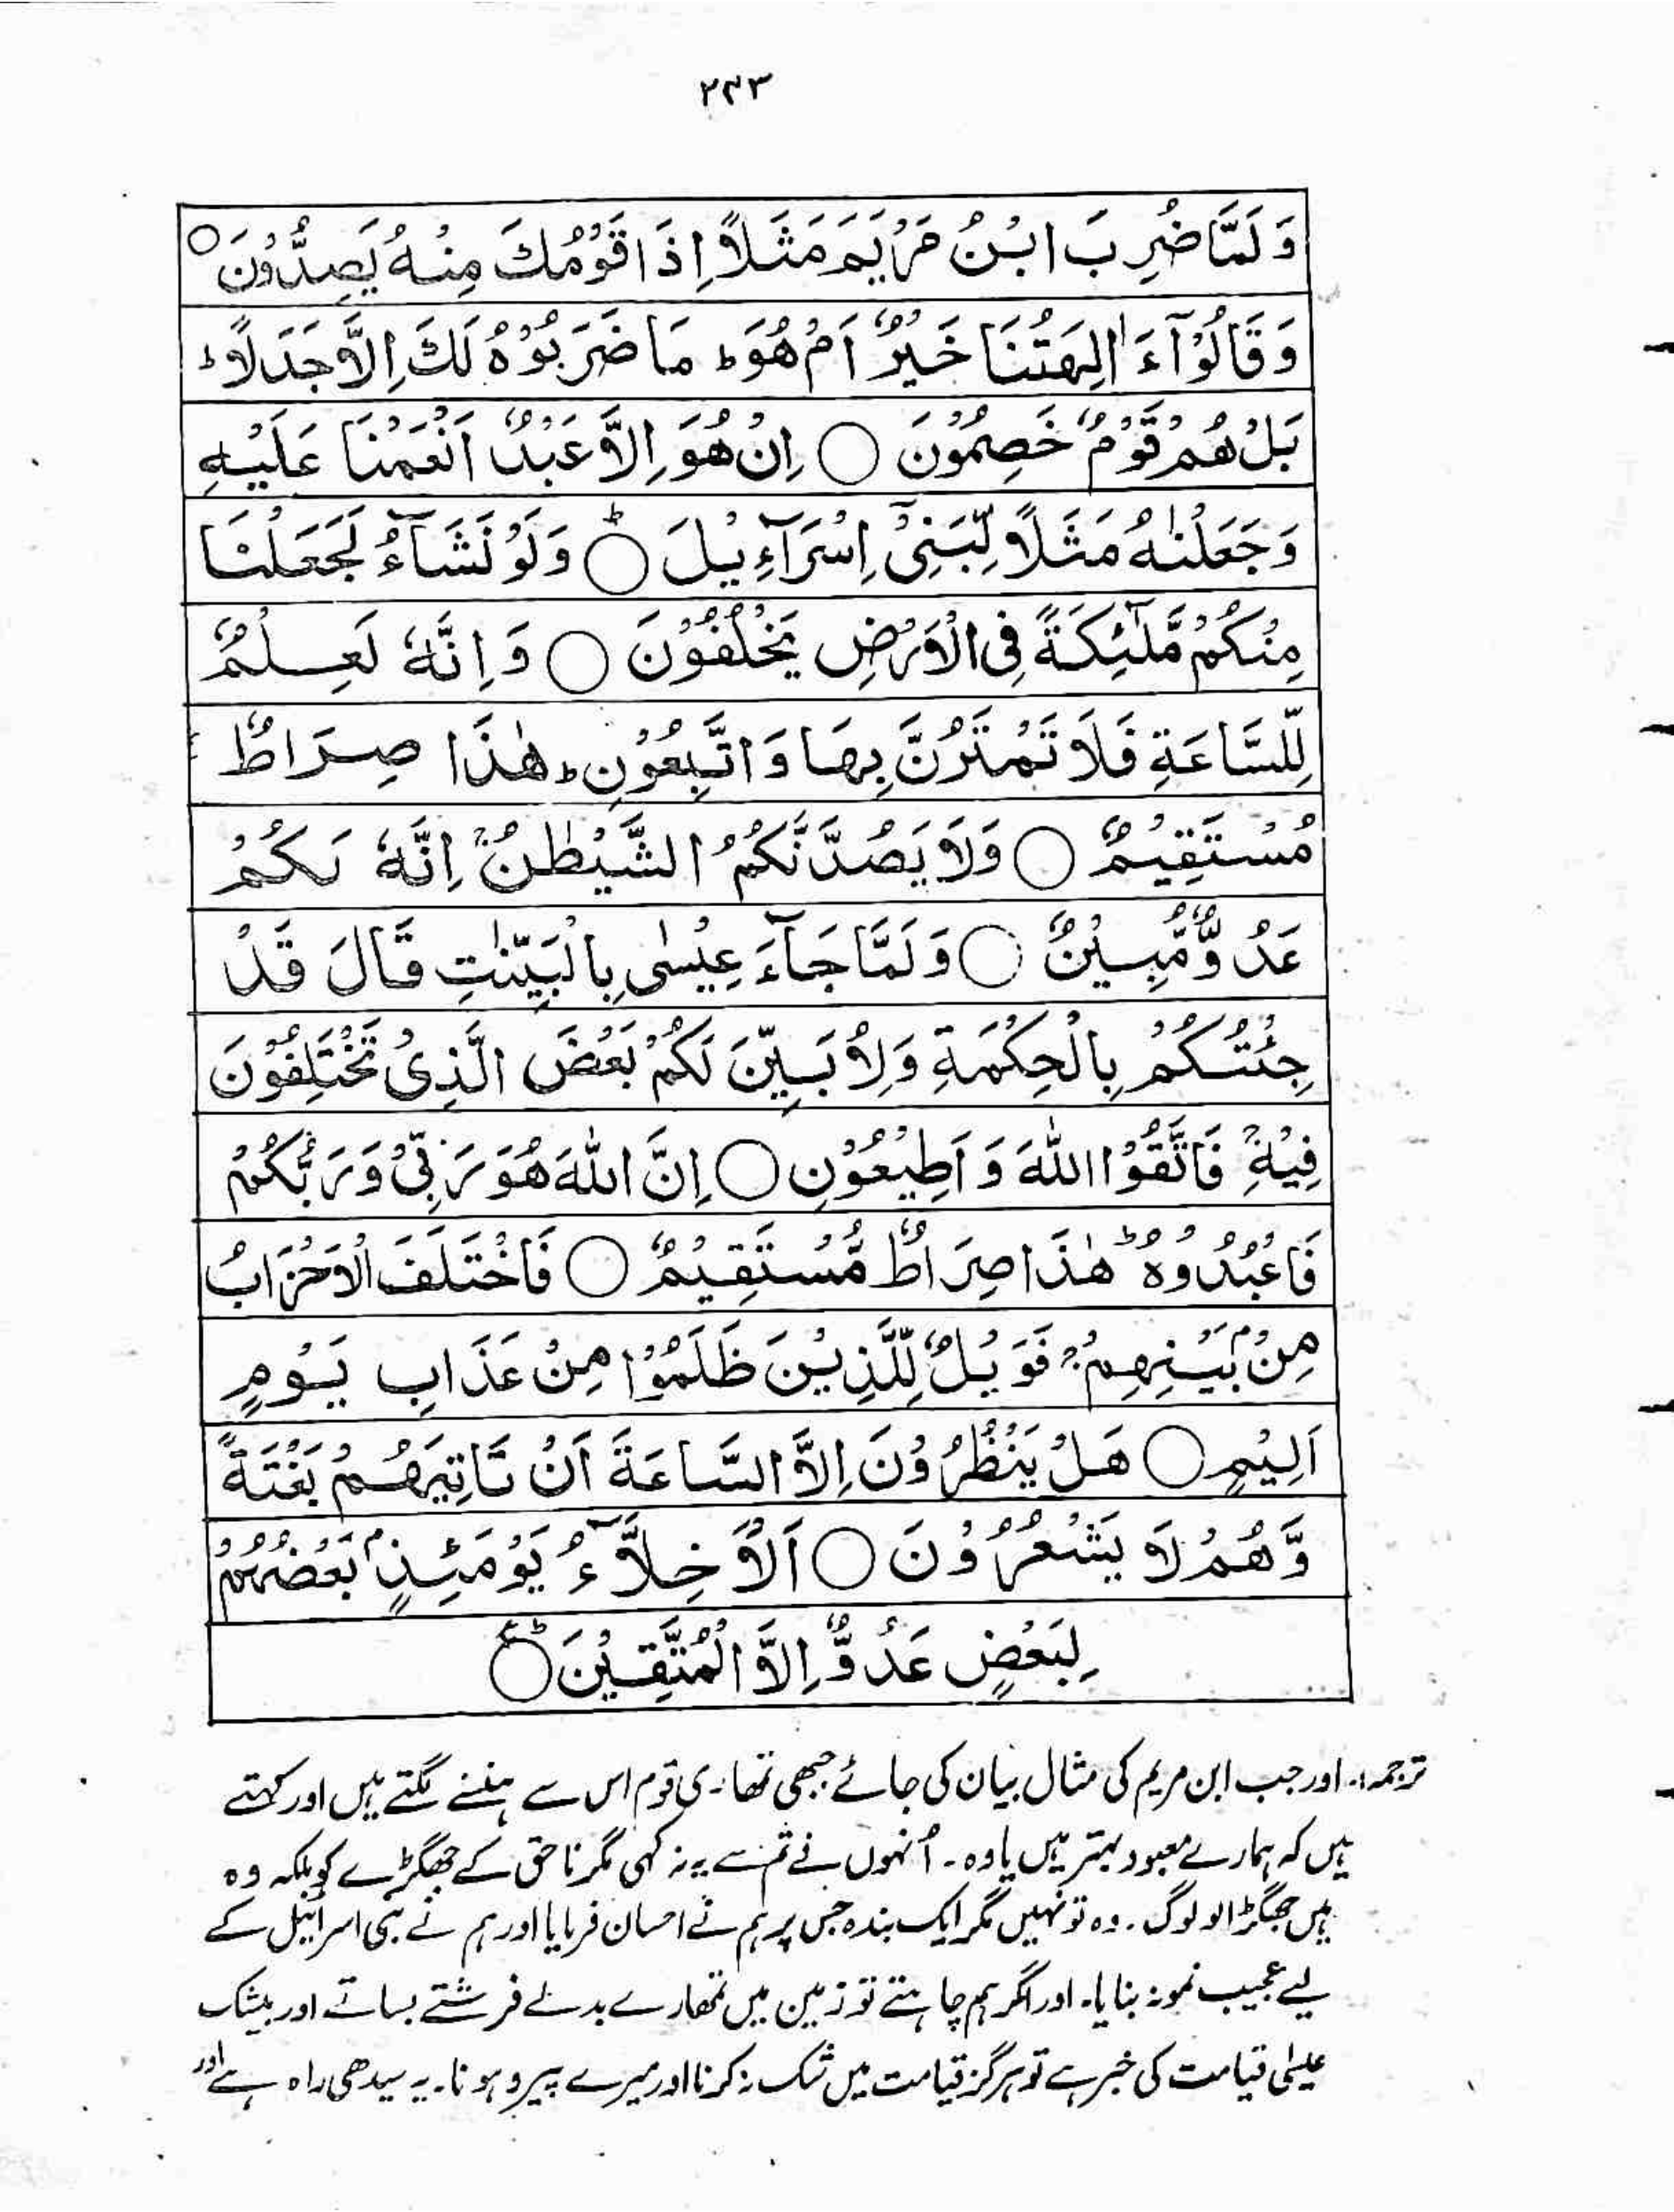 ۲۴۳
وَلَمَّا ضُرِبَ ابْنُ مَرْيَمَ مَثَلًا اِذَا قَوْمُكَ مِنْهُ يَصِدُّوْنَ ○
وَقَالُوْۤا ءَاٰلِهَتُنَا خَيْرٌ اَمْ هُوَ ؕ مَا ضَرَبُوْهُ لَكَ اِلَّا جَدَلًا ؕ
بَلْ هُمْ قَوْمٌ خَصِمُوْنَ ○ اِنْ هُوَ اِلَّا عَبْدٌ اَنْعَمْنَا عَلَيْهِ
وَجَعَلْنٰهُ مَثَلًا لِّبَنِيْۤ اِسْرَآءِيْلَ ○ؕ وَلَوْ نَشَآءُ لَجَعَلْنَا
مِنْكُمْ مَّلٰٓئِكَةً فِى الْاَرْضِ يَخْلُفُوْنَ ○ وَاِنَّهٗ لَعِلْمٌ
لِّلسَّاعَةِ فَلَا تَمْتَرُنَّ بِهَا وَاتَّبِعُوْنِ ؕ هٰذَا صِرَاطٌ
مُسْتَقِيْمٌ ○ وَلَا يَصُدَّنَّكُمُ الشَّيْطٰنُ ۚ اِنَّهٗ لَكُمْ
عَدُوٌّ مُّبِيْنٌ ○ وَلَمَّا جَآءَ عِيْسٰى بِالْبَيِّنٰتِ قَالَ قَدْ
جِئْتُكُمْ بِالْحِكْمَةِ وَلِاُبَيِّنَ لَكُمْ بَعْضَ الَّذِىْ تَخْتَلِفُوْنَ
فِيْهِ ۚ فَاتَّقُوْا اللّٰهَ وَاَطِيْعُوْنِ ○ اِنَّ اللّٰهَ هُوَ رَبِّىْ وَرَبُّكُمْ
فَاعْبُدُوْهُ ؕ هٰذَا صِرَاطٌ مُّسْتَقِيْمٌ ○ فَاخْتَلَفَ الْاَحْزَابُ
مِنْۢ بَيْنِهِمْ ۚ فَوَيْلٌ لِّلَّذِيْنَ ظَلَمُوْا مِنْ عَذَابِ يَوْمٍ
اَلِيْمٍ ○ هَلْ يَنْظُرُوْنَ اِلَّا السَّاعَةَ اَنْ تَاْتِيَهُمْ بَغْتَةً
وَّهُمْ لَا يَشْعُرُوْنَ ○ اَلْاَخِلَّآءُ يَوْمَئِذٍۢ بَعْضُهُمْ
لِبَعْضٍ عَدُوٌّ اِلَّا الْمُتَّقِيْنَ ○ؕع
ترجمہ:۔ اور جب ابن مریم کی مثال بیان کی جائے جبھی تمھاری قوم اس سے ہنسنے لگتے ہیں اور کہتے
ہیں کہ ہمارے معبود بہتر ہیں یا وہ ۔ اُنہوں نے تم سے یہ نہ کہی مگر ناحق کے جھگڑے کو بلکہ وہ
ہیں جھگڑالو لوگ ۔ وہ تو نہیں مگر ایک بندہ جس پر ہم نے احسان فرمایا اور ہم نے بنی اسرائیل کے
لیے عجیب نمونہ بنایا۔ اور اگر ہم چاہتے تو زمین میں تمھارے بدلے فرشتے بساتے اور بیشک
عیسٰی قیامت کی خبر ہے تو ہرگز قیامت میں شک نہ کرنا اور میرے پیرو ہونا۔ یہ سیدھی راہ ہے اور